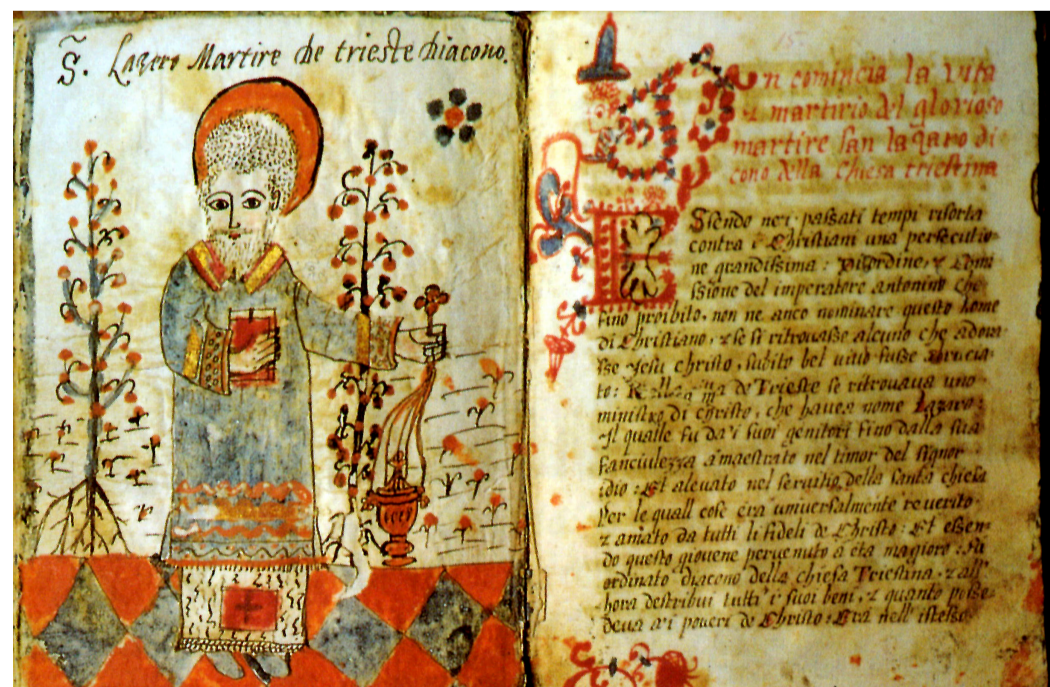 S̃. Lazero Martire de trieste diacono.
15.
In comincia la vita
& martirio del glorioso
martire san lazaro di
cono della chiesa triestina
Essendo nei passati tempi risorta
contra i Christiani una persecutio-
ne grandissima: per ordine, & Comi
ssione del imperatore antonino che
fino proibito, non ne anco nominare questo nome
di Christiano, & se si ritrovasse alcuno che adora-
sse Jesu christo, subito bel vivo fusse brucia-
to: de Trieste se ritrovava uno
ministro di christo, che havea nome Lazaro:
Il qualle fu da i suoi genitori fino dalla sua
fanciulezza amaestrato nel timor del signor
idio: Et alevato nel servitio della santa chiesa
Per le quall cose era universalmente reverito
& amato da tutti li fideli de Christo: Et essen-
do questo giovene pervenuto a eta magiore: fu
ordinato diacono della chiesa Triestina, & all'
hora destribui tutti i suoi beni, & quanto posse-
deva a i poveri de Christo: Era nell' istesso